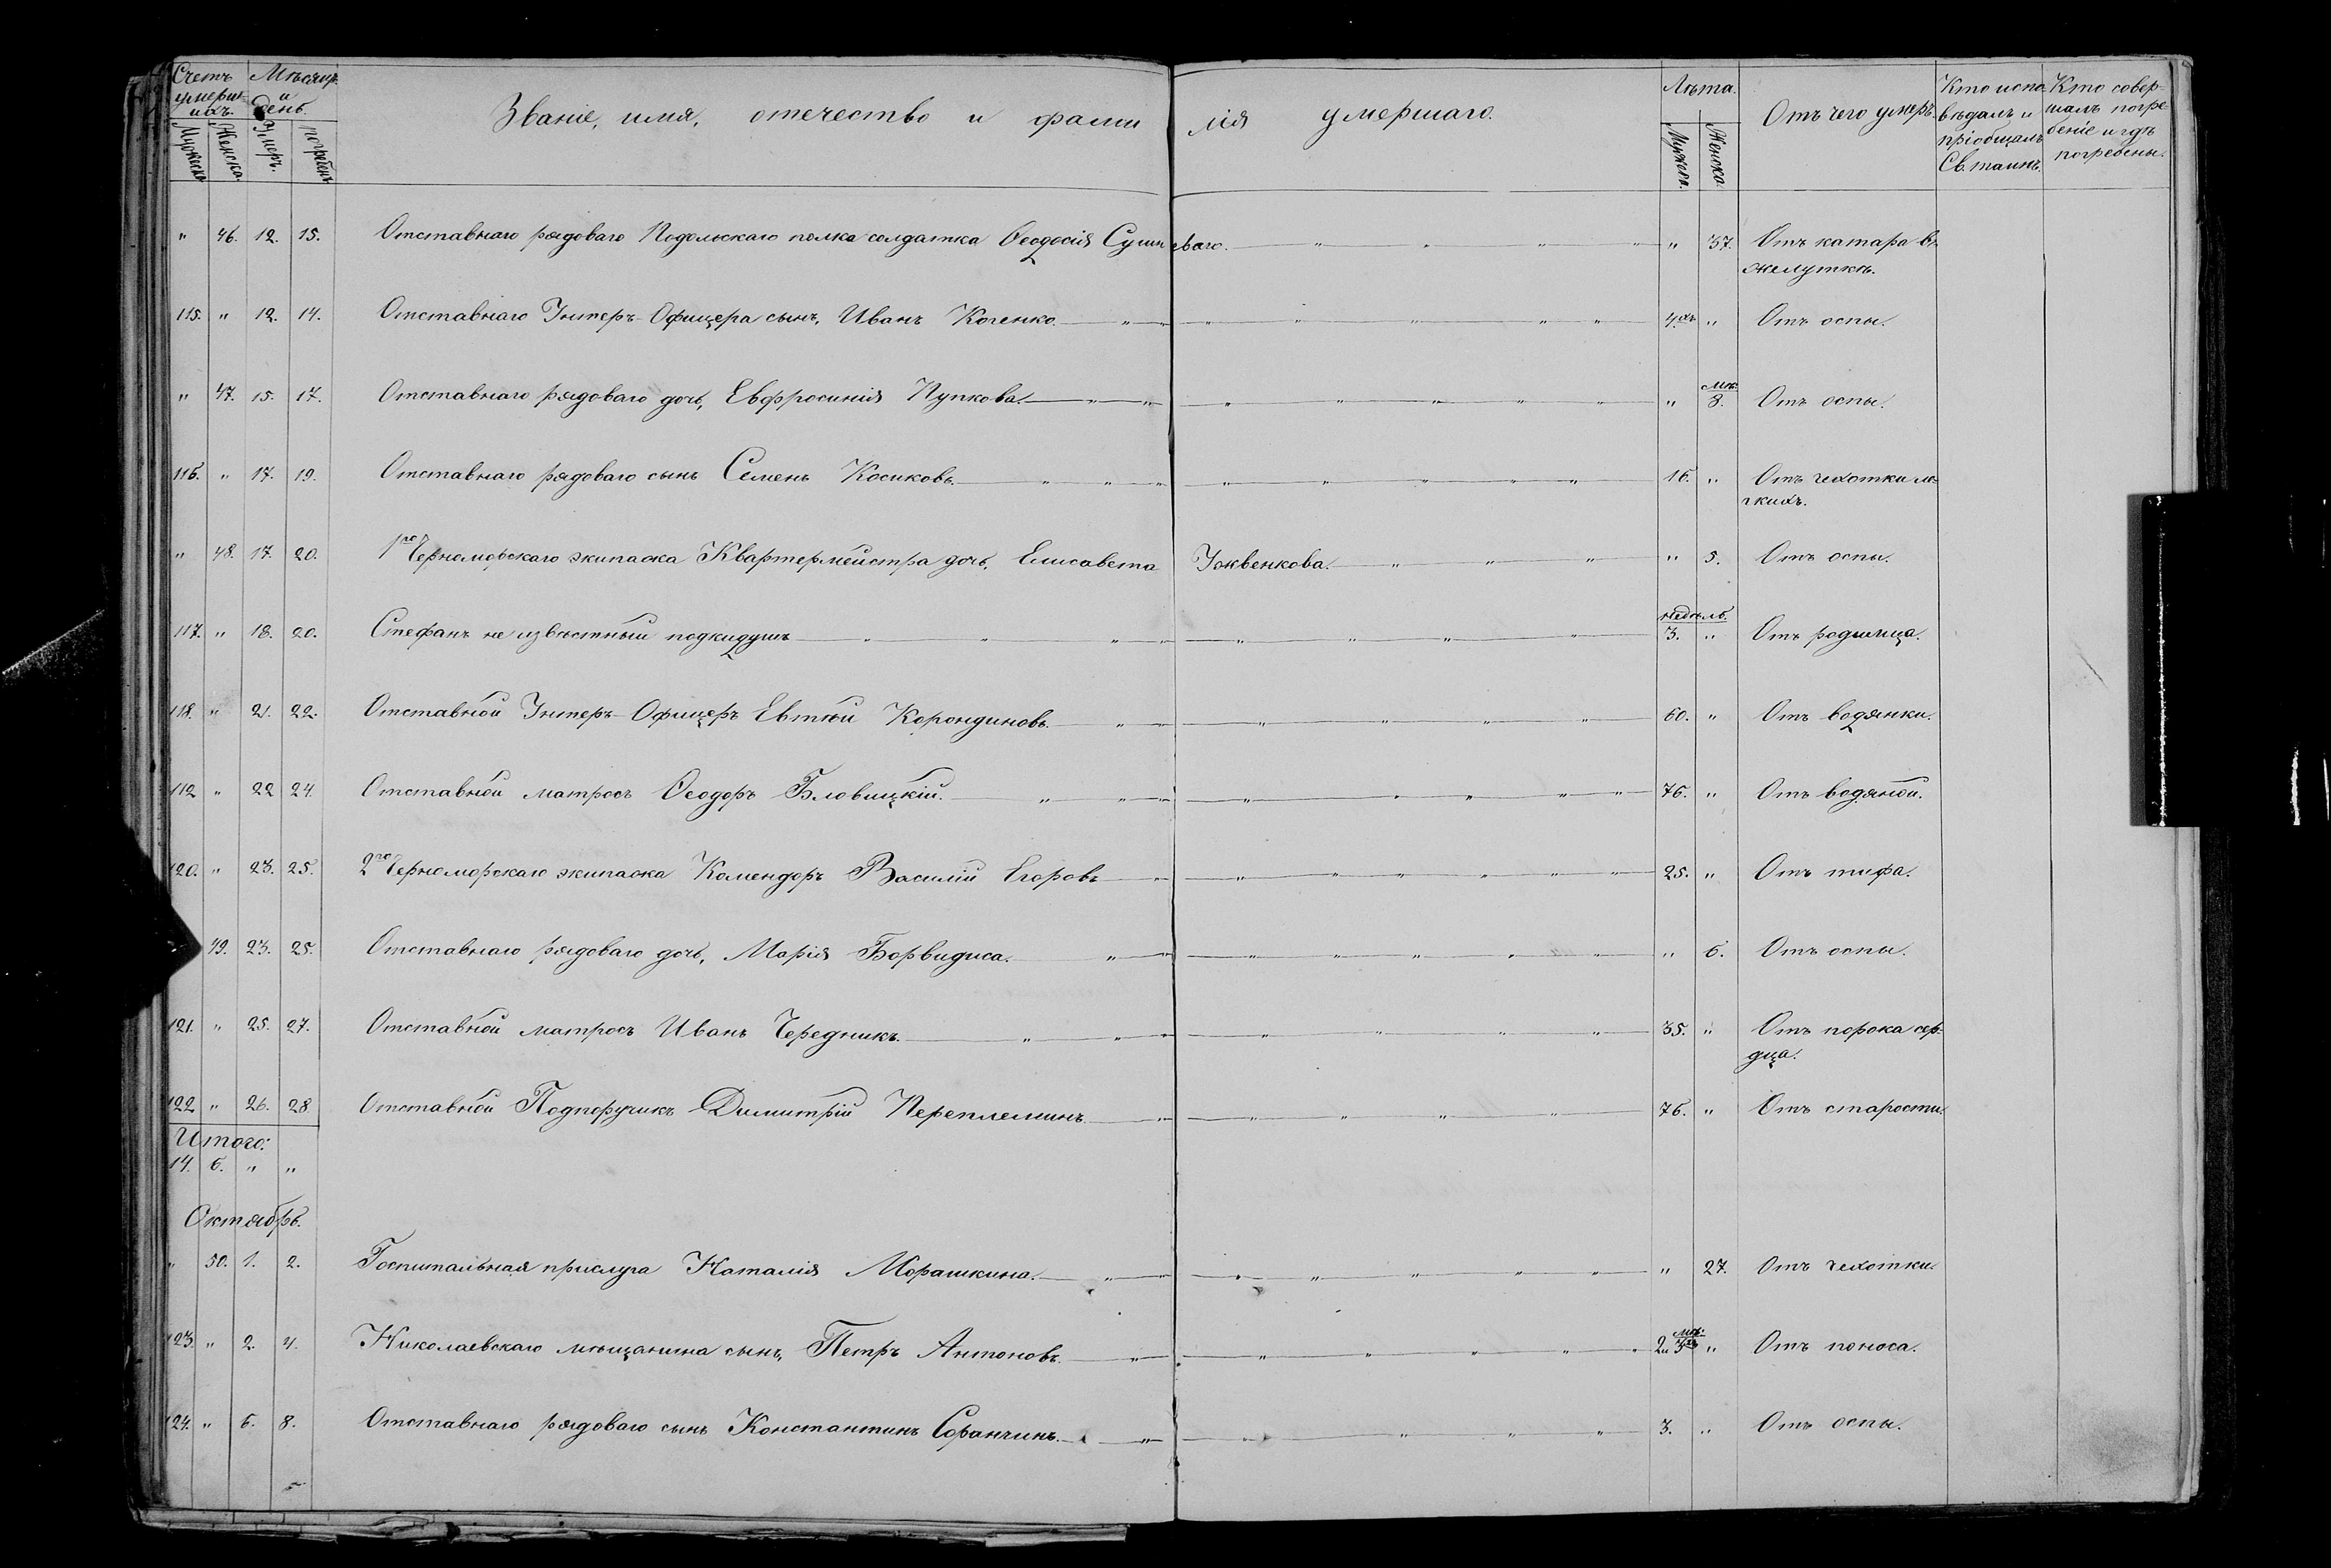 Счетъ умерш-ихъ. Мѣсяцъ и день. Званіе, имя, отечество и фамилія умершаго. Лѣта. Отъ чего умеръ. Кто испо-вѣдалъ и пріобщалъ Св. таинъ. Кто совер-шалъ погре-беніе и гдѣ погребены.
Мужеска. Женска. Умеръ. погребенъ Мужеска. Женска.
" 46. 12. 15. Отставнаго рядоваго Подольскаго полка солдатка Ѳеодосія " 37. Отъ катара въ
желуткѣ.
115. " 12. 14. Отставнаго Унтеръ-Офицера сынъ, Иванъ Коченко. 4.хъ " Отъ оспы.
" 47. 15. 17. Отставнаго рядоваго дочь, Евфросинія Пупкова. " мѣ: 8. Отъ оспы.
116. " 17. 19. Отставнаго рядоваго сынъ Семенъ Косиковъ. 16. " Отъ чехотки ле-
гкихъ.
" 48. 17. 20. 1го Черноморскаго экипажа Квартермейстра дочь, Елисавета Ужвенкова. " 5. Отъ оспы.
117. " 18. 20. Стефанъ не извѣстный подкидушъ недѣль. 3. " Отъ родимца.
118. " " 21. 22. Отставной Унтеръ-Офицеръ Евтѣй Корондиновъ. 60. " Отъ водянки.
112 " 22 24. Отставной матросъ Ѳеодоръ Бловицкій. 76. " Отъ водяной.
120. " 23. 25. 2го Черноморскаго экипажа Комендоръ Василій Егоровъ 25. " Отъ тифа.
49. 23. 25. Отставнаго рядоваго дочь, Марія Борвидиса. " 6. Отъ оспы.
121. " 25. 27. Отставной матросъ Иванъ Чередникъ. 35. " Отъ порока сер-
дца.
122 " 26. 28. Отставной Подпоручикъ Димитрій Переплеминъ 76. " Отъ старости
Итого:
14. 6. " "
Октябрь.
" 50. 1. 2. Госпитальная прислуга Наталія Морашкина. " 27. Отъ чехотки.
123. " 2. 4. Николаевскаго мѣщанина сынъ, Петръ Антоновъ. 2 и мѣ: 3хъ " Отъ поноса.
124. " 6. 8. Отставнаго рядоваго сынъ Константинъ Соранчинъ. 3. " Отъ оспы.